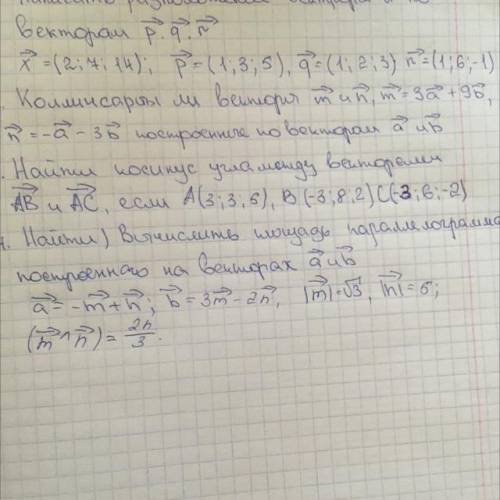 Написать разложение вектора x по
векторам p⃗. q⃗. n⃗
x⃗ = (2; 7; 14); p⃗ = (1; 3; 5), q⃗ = (1; 2; 3) n⃗ = (1; 6; -1)
. Коллинеарны ли вектора m⃗ и n⃗, m⃗ = 3a⃗ + 9b⃗,
n⃗ = -a⃗ - 3b⃗ построенные по векторам a⃗ и b⃗
. Найти косинус угла между векторами
AB⃗ и AC⃗, если A(3; 3; 5), B(-3; 8; 2) C(-3; 6; -2)
4. Найти) Вычислить площадь параллелограмма
построенного на векторах a⃗ и b⃗
a⃗ = -m⃗ + n⃗; b⃗ = 3m⃗ - 2n⃗, |m⃗| = √3, |n⃗| = 6;
(m⃗ ^ n⃗) = 2π/3.